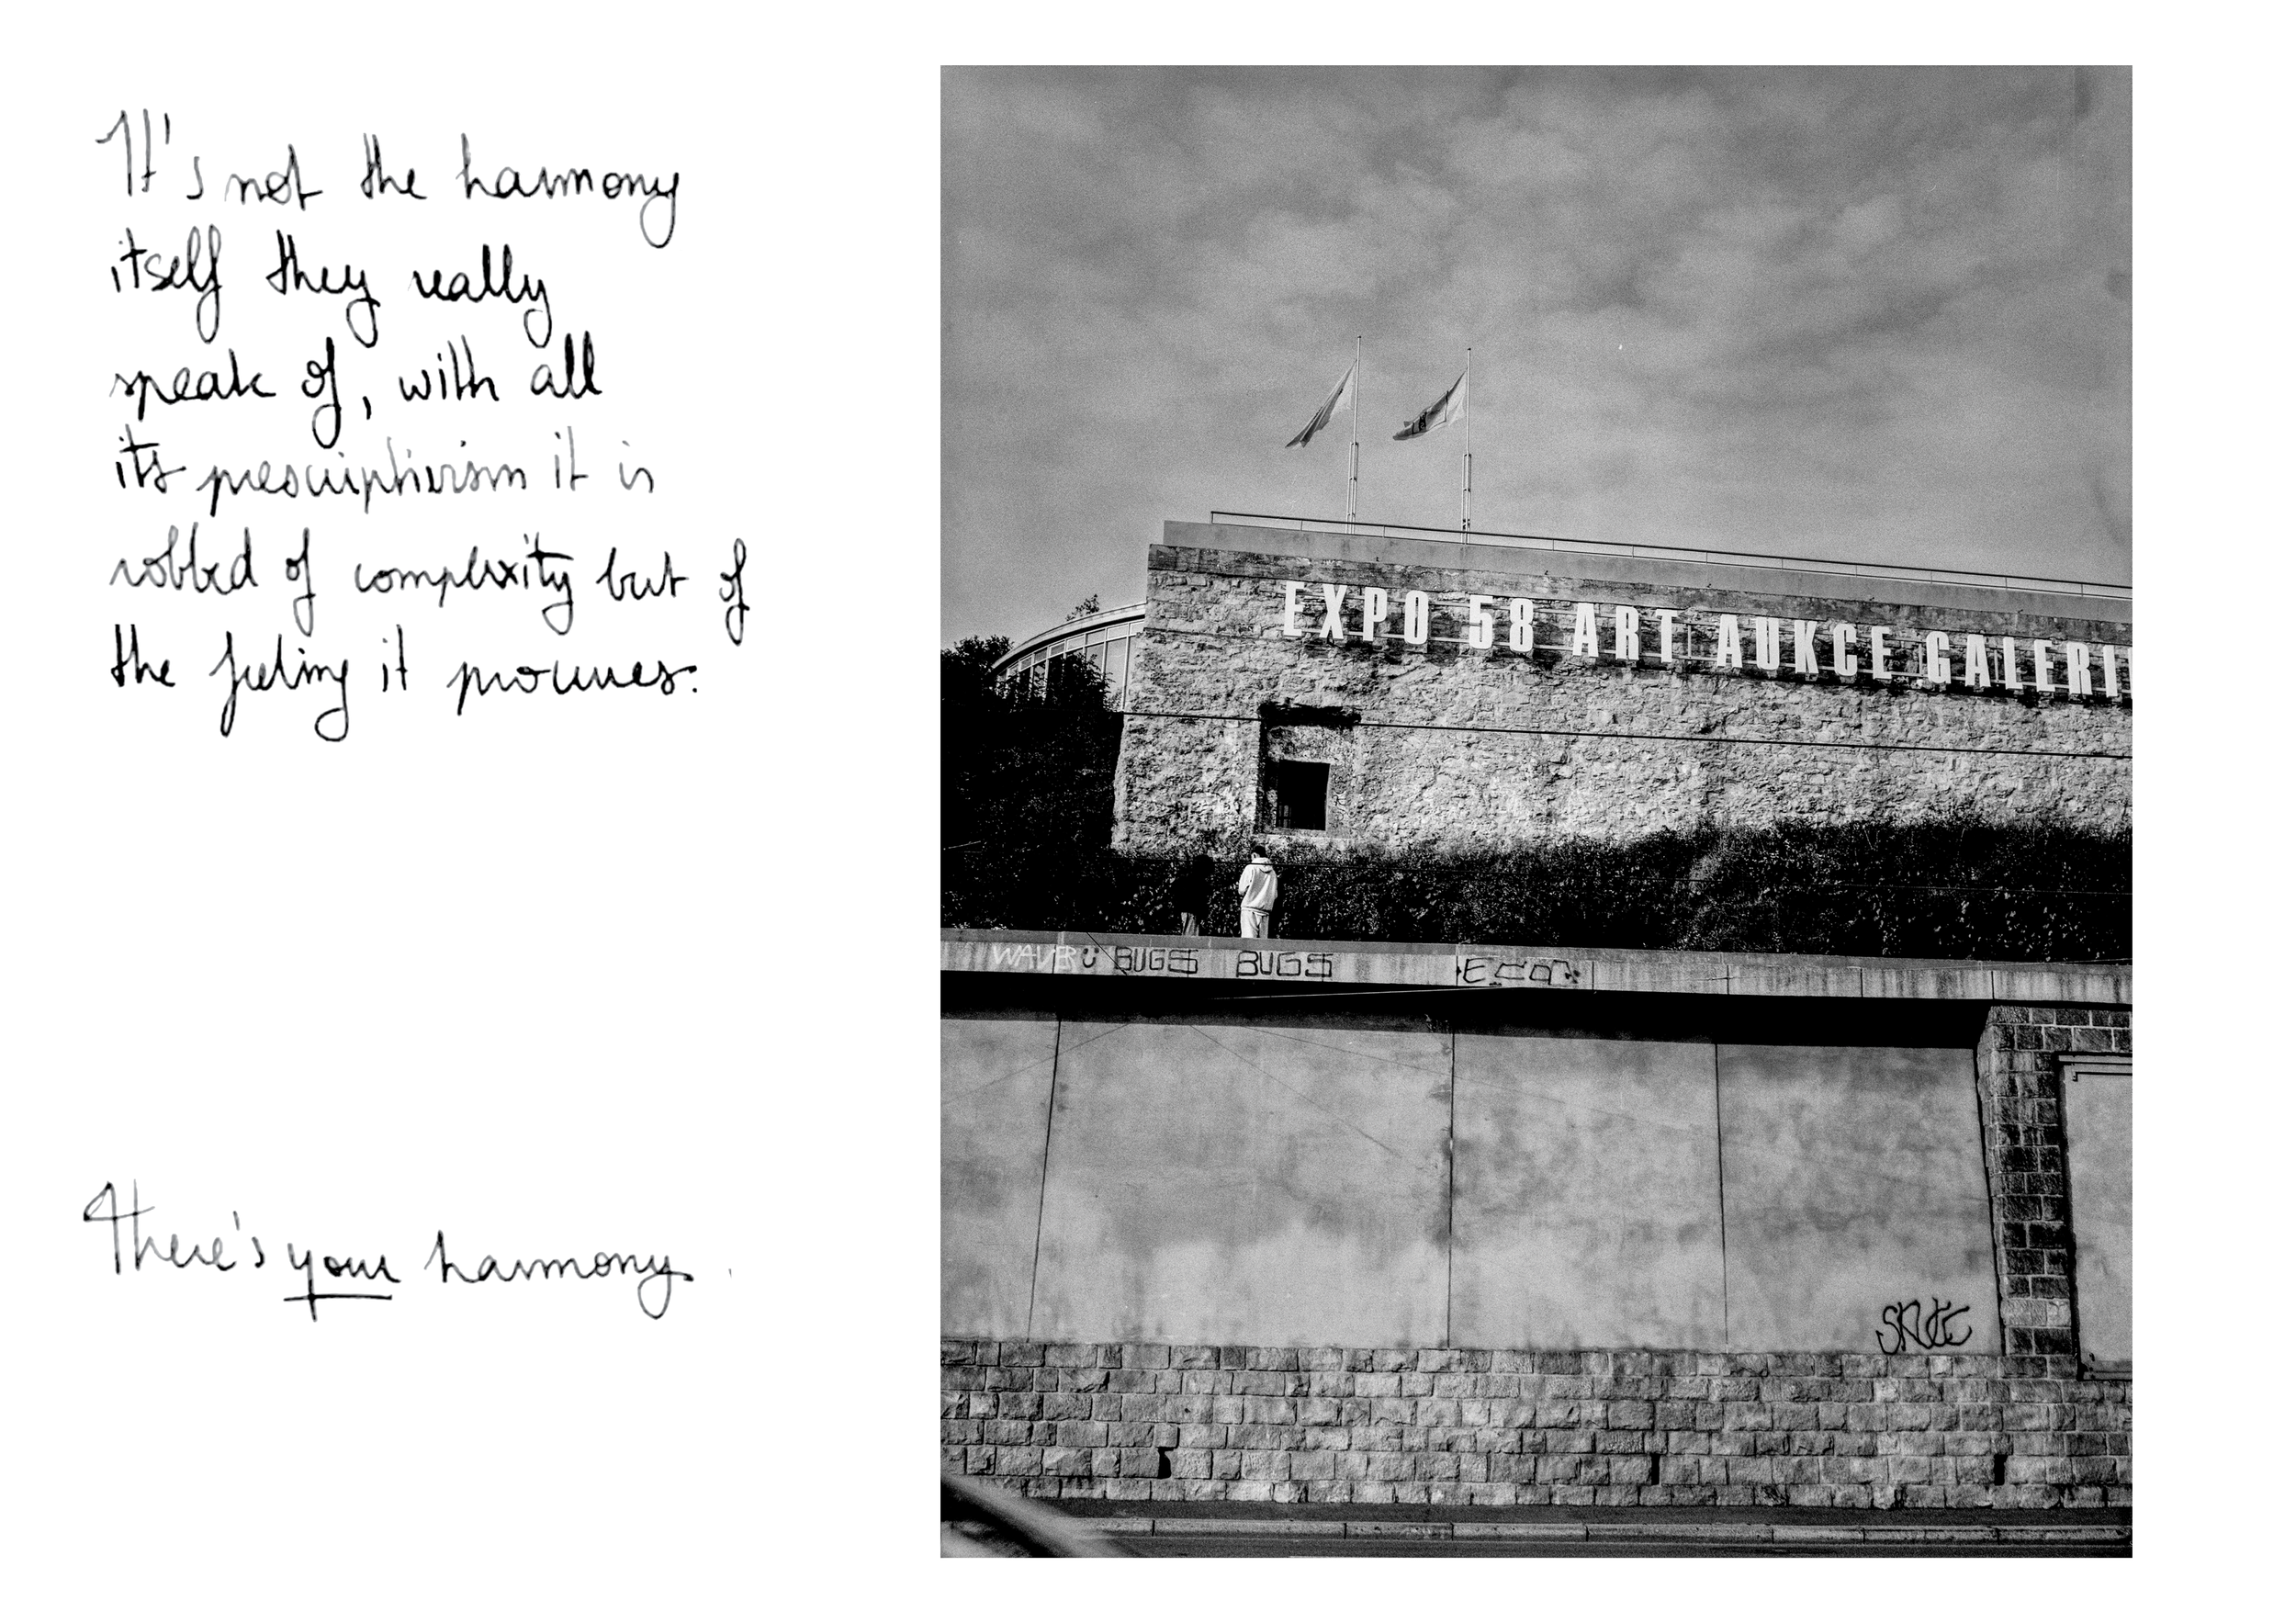 It's not the harmony
itself they really
speak of, with all
its prescriptivism it is
robbed of complexity but of
the feeling it
There's your harmony.
EXPO 58 ART AUKCE GALERI
WAVER BUGS BUGS